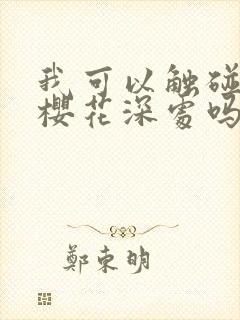 我可以触碰
樱花深处吗
鄭東明